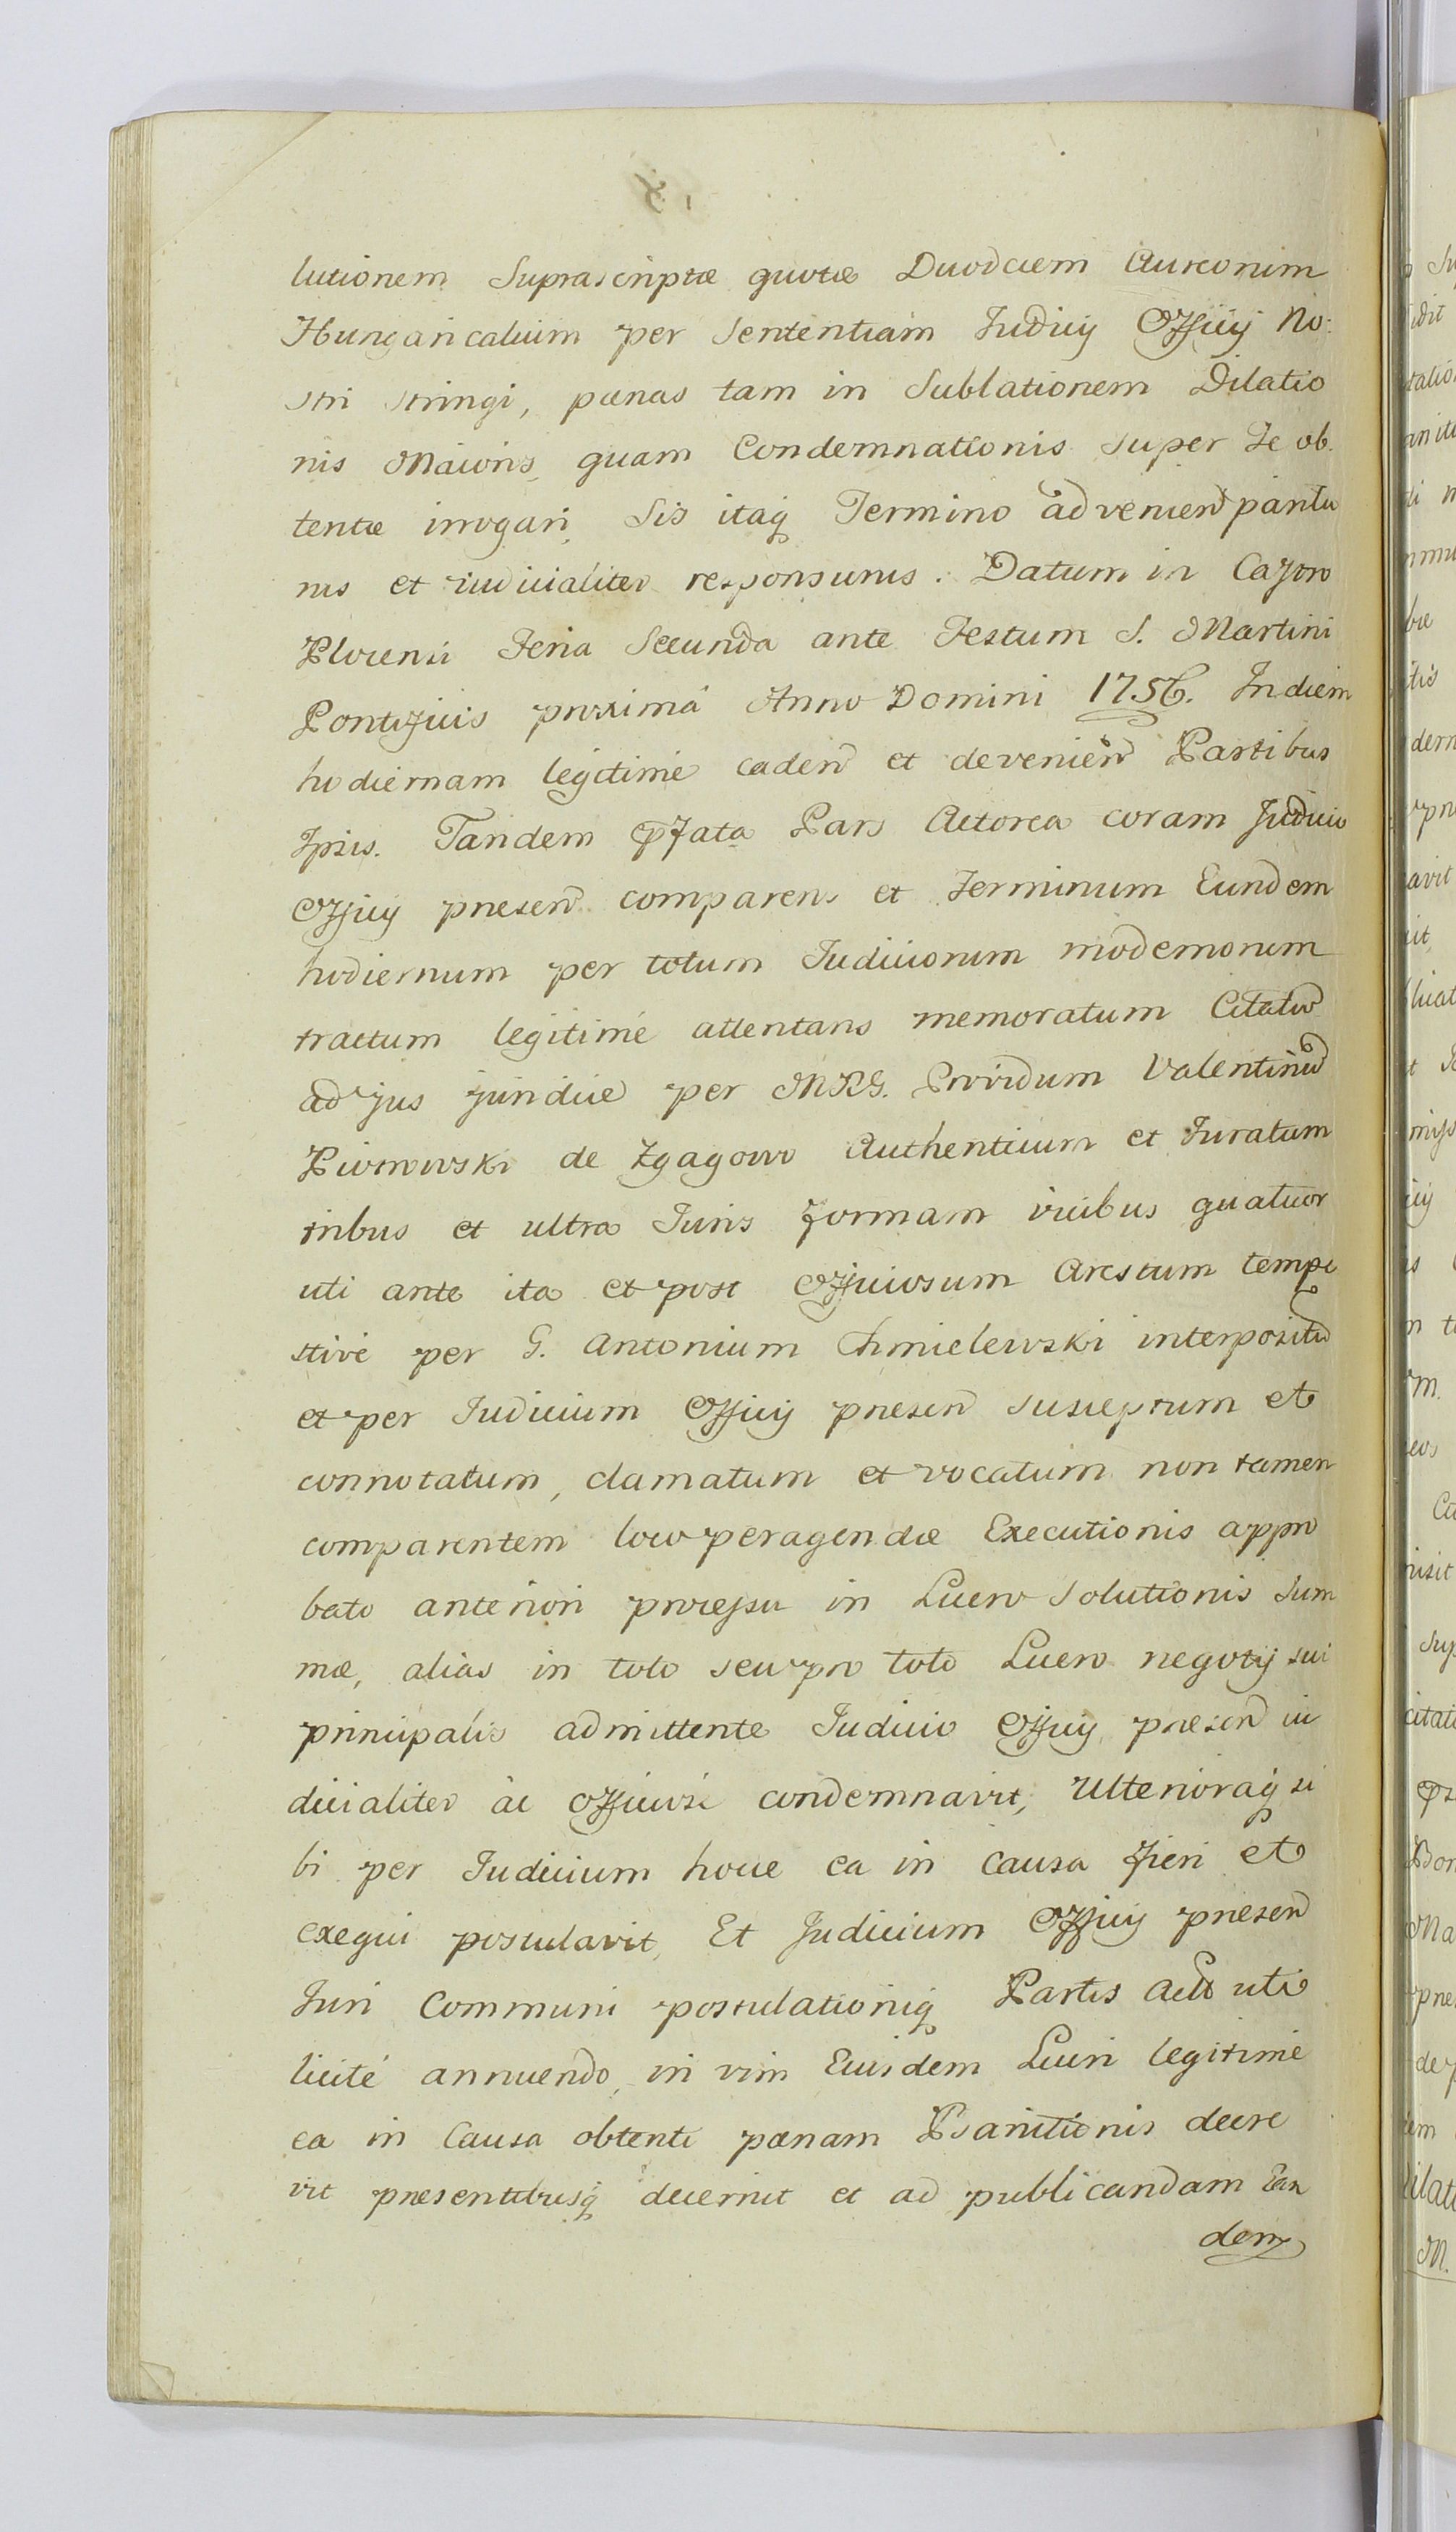 lutionem Suprascriptæ quotæ Duodecem Aureorum
Hungaricalium per Sententiam Judicÿ Officÿ No:
stri stringi, pænas tam in Sublationem Dilatio
nis Maioris, quam Condemnationis super Te ob
tentæ irrogari, Sis itaq Termino advenien paritu
rus et iudicialiter responsurus. Datum in Castro
Plocensi Feria Secunda ante Festum S. Martini
Pontificis proximâ Anno Domini 1756. In diem
hodiernam legitime caden et devenien Partibus
Ipsis. Tandem pfata Pars Actorea coram Judicio
Officÿ præsen comparens et Terminum Eundem
hodiernum per totum Judiciorum modernorum
tractum legitimé attentans memoratum Citatu
ad jus juridice per MRG. Providum Valentinu
Piotrowski de Zgagowo Authenticum et Juratum
tribus et ultra Juris formam vicibus quatuor
uti ante ita et post Officiosum Arestum tempe
stivé per G. Antonium Chmielewski interpositu
et per Judicium Officÿ præsen susceptum et
connotatum, clamatum et vocatum non tamen
comparentem loco peragendæ Executionis appro
bato anteriori processu in Lucro Solutionis Sum
mæ, alias in toto seu pro toto Lucro negotÿ sui
principalis admittente Judicio Officÿ præsen iu
dicialiter ac officiosé condemnavit, Ulterioraq si
bi per Judicium hocce ea in Causa fieri et
exequi postulavit, Et Judicium Officÿ præsen
Juri Communi postulationiq Partis Act uti
licité annuendo, in vim Eiusdem Lucri legitimé
ea in Causa obtenti pænam Bannitionis decre
vit præsentibusq decernit et ad publicandam Ean
dem